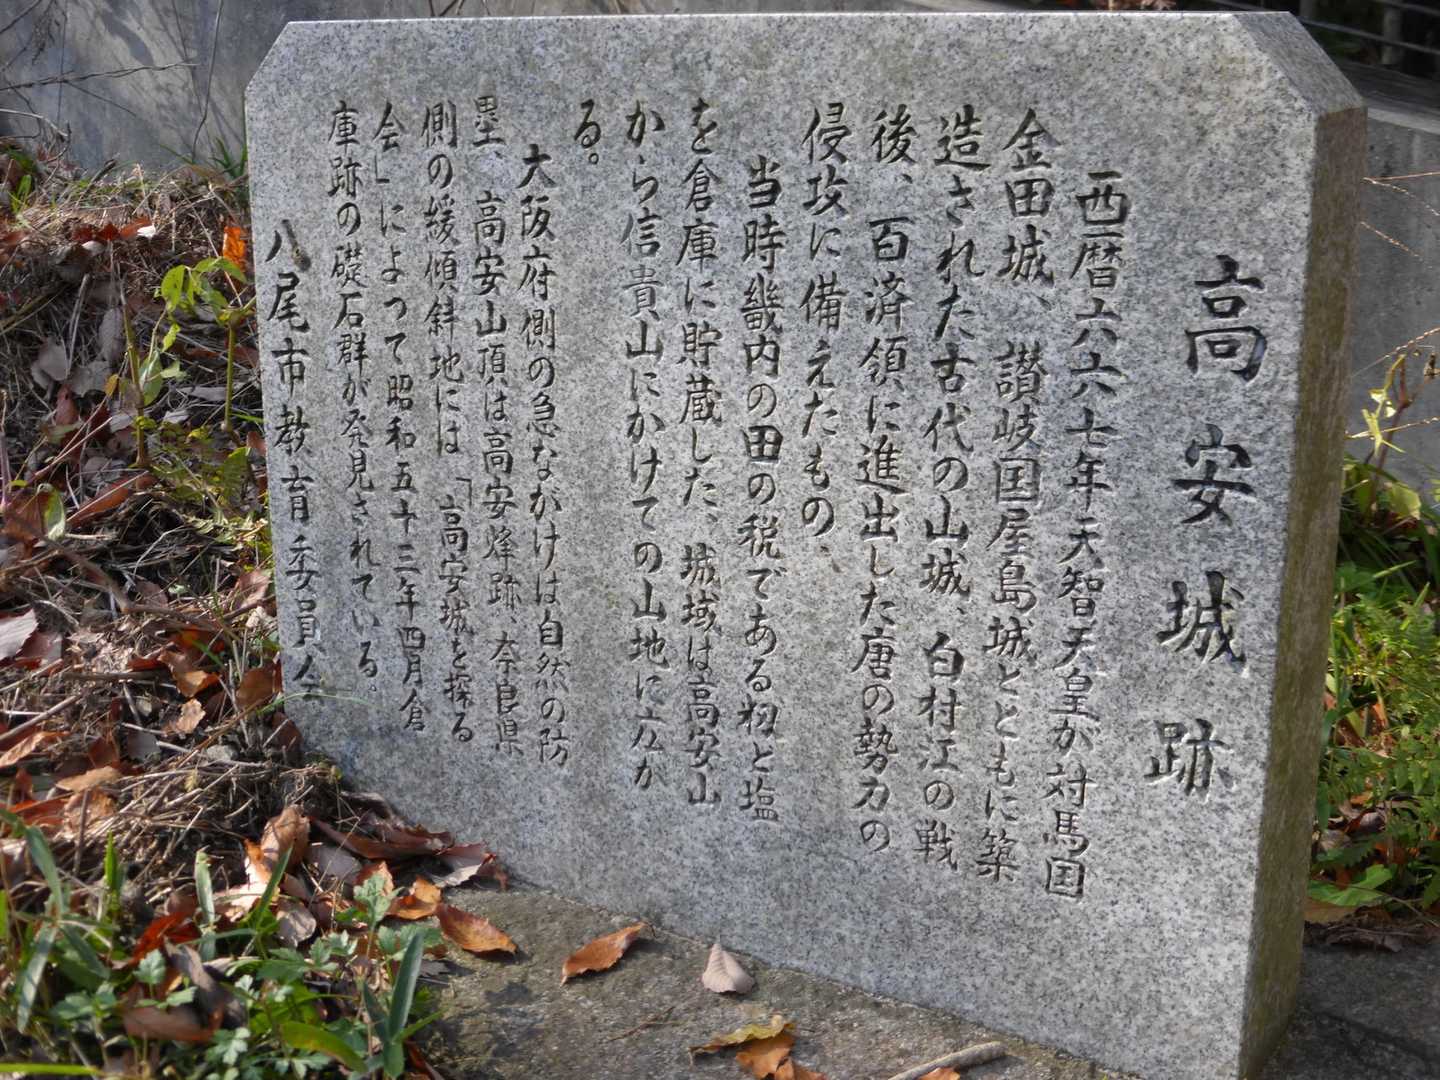 高安城跡
西暦六六七年天智天皇が対馬国
金田城、讃岐国屋島城とともに築
造された古代の山城、白村江の戦
後、百済領に進出した唐の勢力の
侵攻に備えたもの、
当時畿内の田の税である籾と塩
を倉庫に貯蔵した、城域は高安山
から信貴山にかけての山地に広が
る。
大阪府側の急ながけは自然の防
塁 高安山頂は高安烽跡、奈良県
側の緩傾斜地には「高安城を探る
会」によって昭和五十三年四月倉
庫跡の礎石群が発見されている。
八尾市教育委員会